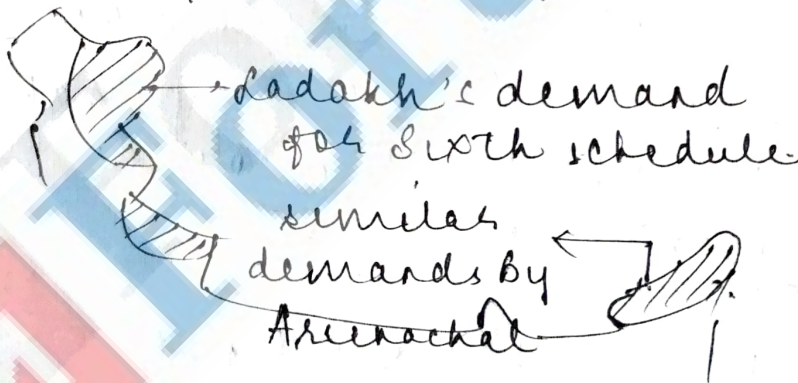 Ladakh's demand
for Sixth schedule.
similar
demands By
Arunachal